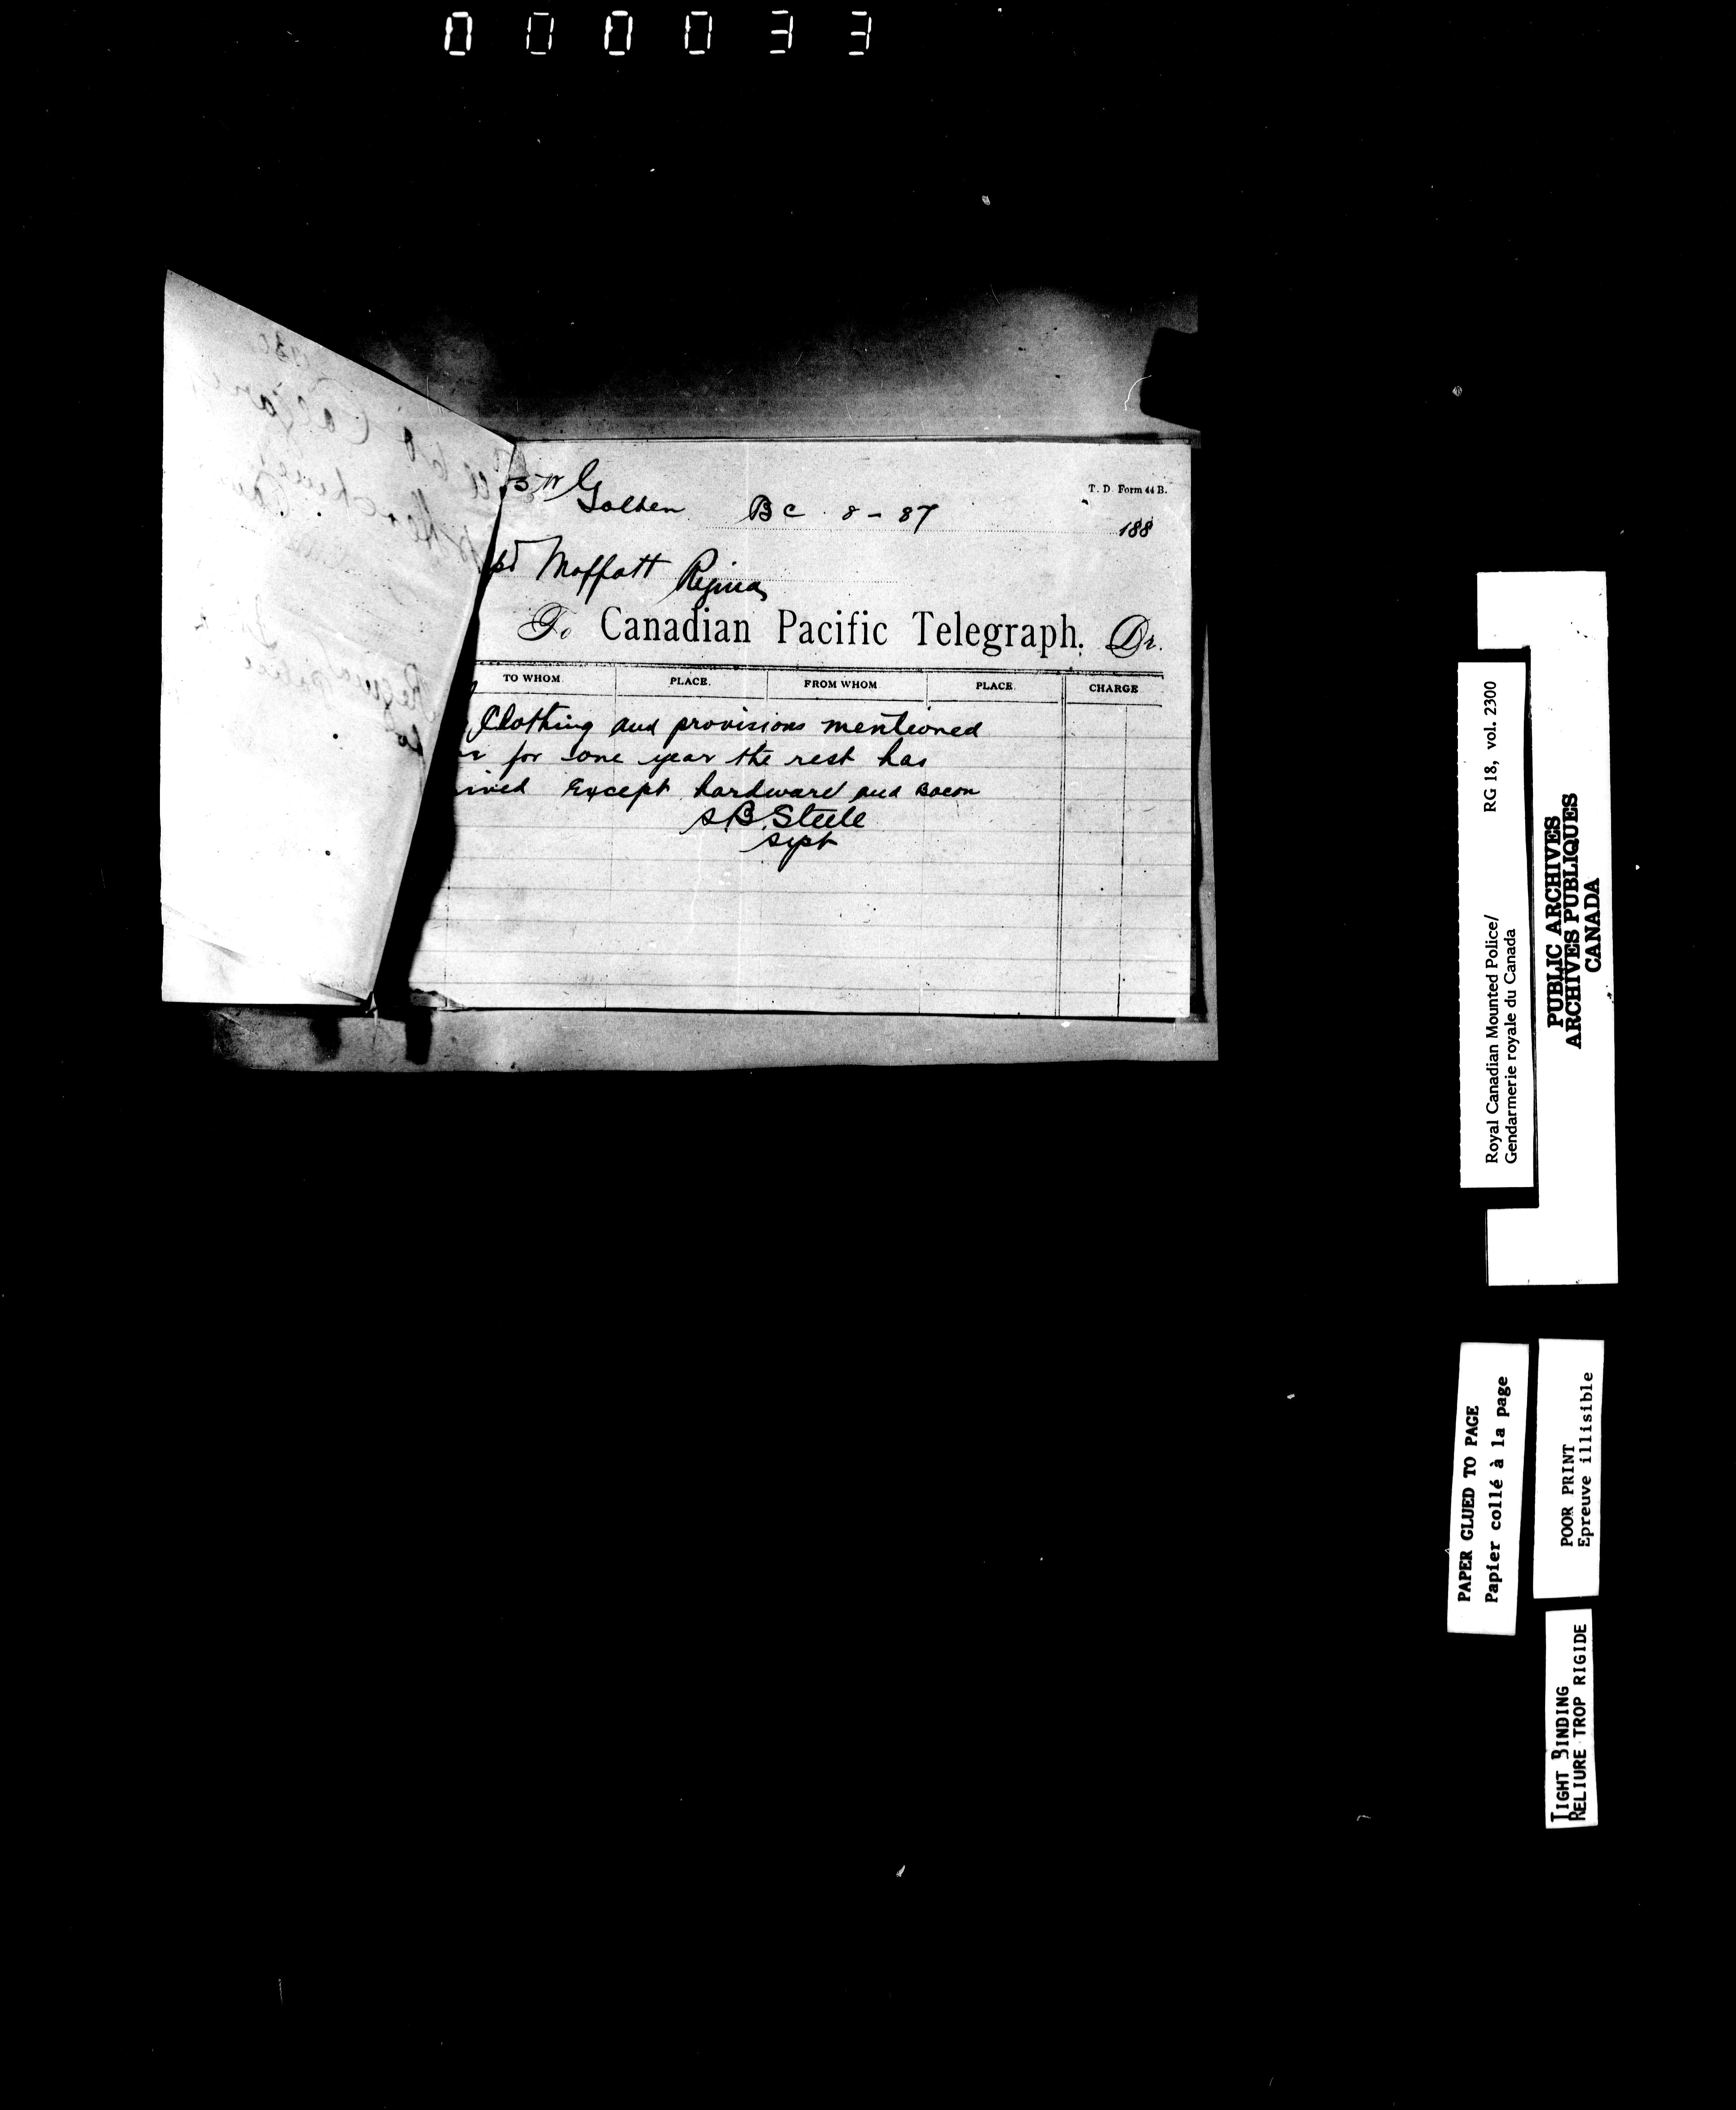 000033
T. D. Form 44 B.
Golden BC 8 - 87
188
Moffatt Regina
To Canadian Pacific Telegraph, Dr.
TO WHOM. PLACE. FROM WHOM PLACE. CHARGE
Clothing and provisions mentioned
for one year the rest has
Except hardware and Bacon
S.B. Steele
Supt
Royal Canadian Mounted Police/ RG 18, vol. 2300
Gendarmerie royale du Canada
PUBLIC ARCHIVES
ARCHIVES PUBLIQUES
CANADA
PAPER GLUED TO PAGE
Papier collé à la page
POOR PRINT
Epreuve illisible
TIGHT BINDING
RELIURE TROP RIGIDE